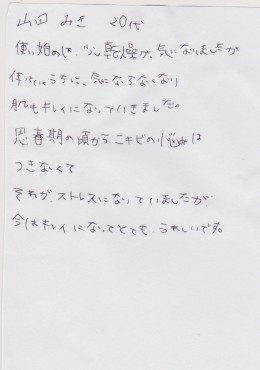 山田 みき 20代
使い始めは、少し乾燥が、気になりましたが
使っているうちに、気にならなくなり
肌もキレイになっていきました。
思春期の頃からニキビの悩みは
つきなくて
それが、ストレスになっていましたが、
今はキレイになってとても うれしいです。